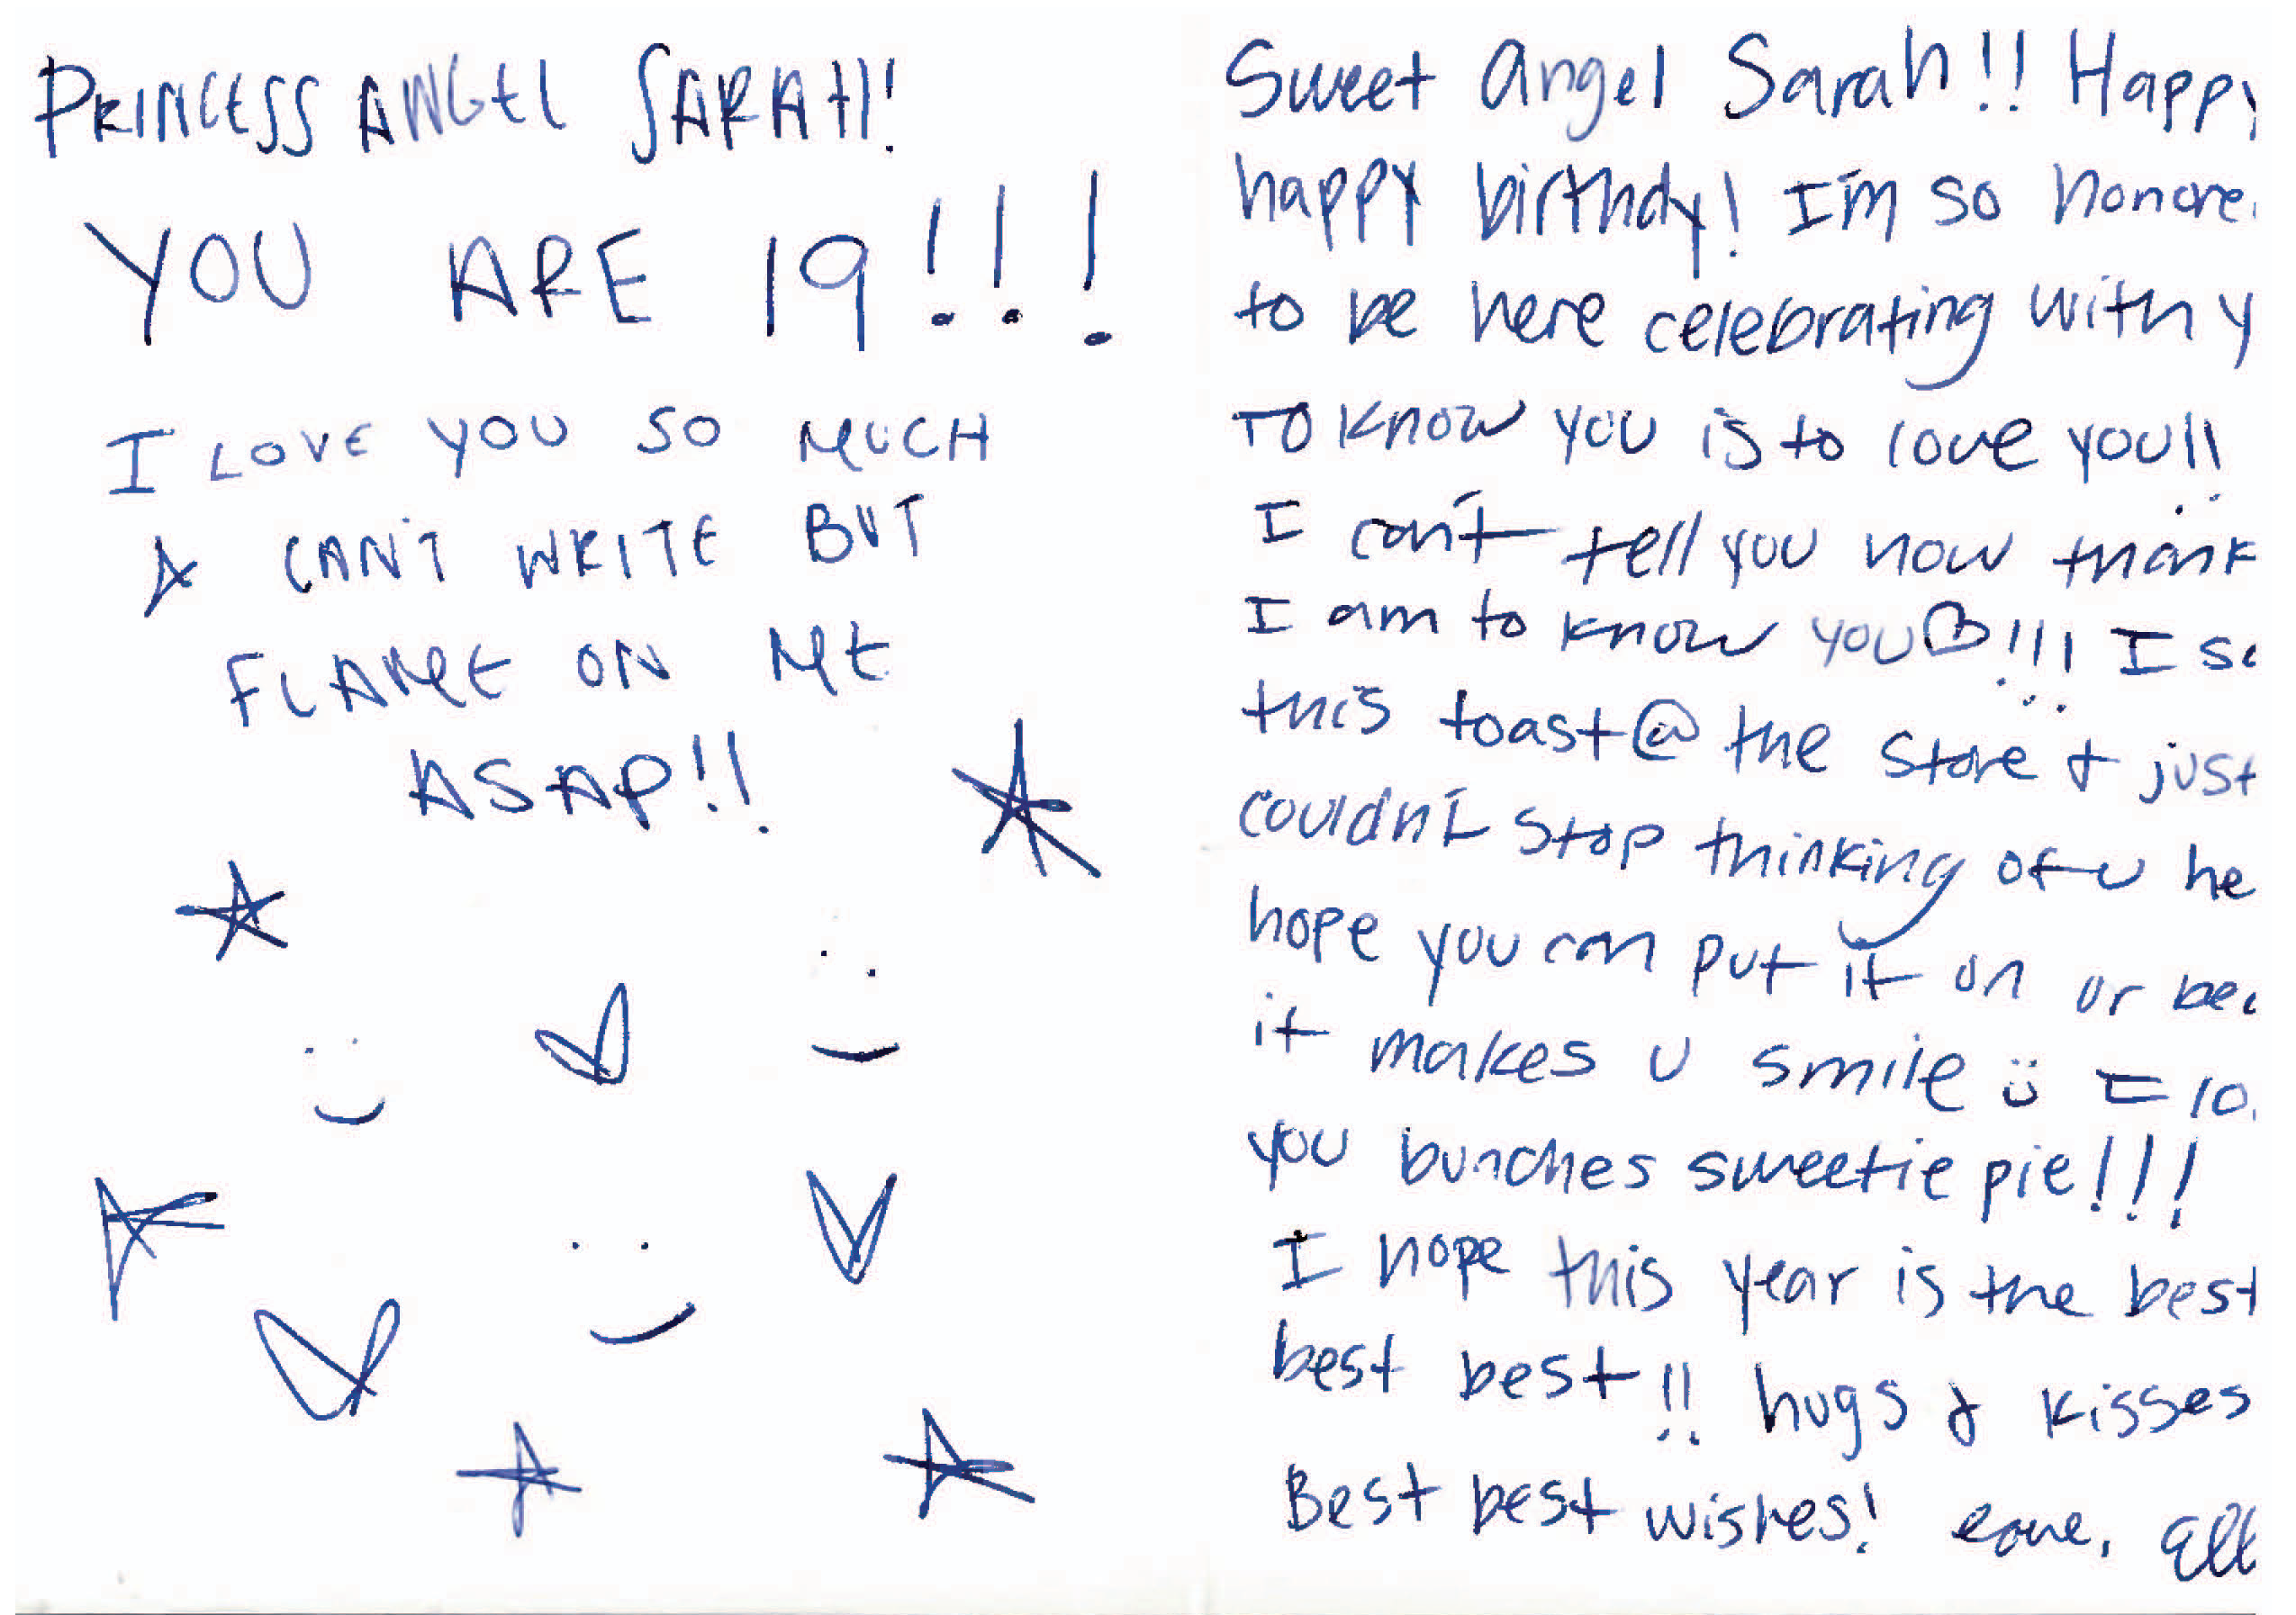 PRINCESS ANGEL SARAH!
YOU ARE 19!!!
I LOVE YOU SO MUCH
CAN'T WRITE BUT
FLAME ON ME
ASAP!!
Sweet Angel Sarah!! Happy
happy birthdy! I'm so honore
to be here celebrating with y
To know you is to love you!!
I can't tell you how thank
I am to know you♡!!! I
this toast @ the store & just
couldn't stop thinking of u he
hope you can put it on or
it makes u smile ü I
you bunches sweetie pie!!!
I hope this year is the best
best best!! hugs & kisses
Best best wishes! Love,